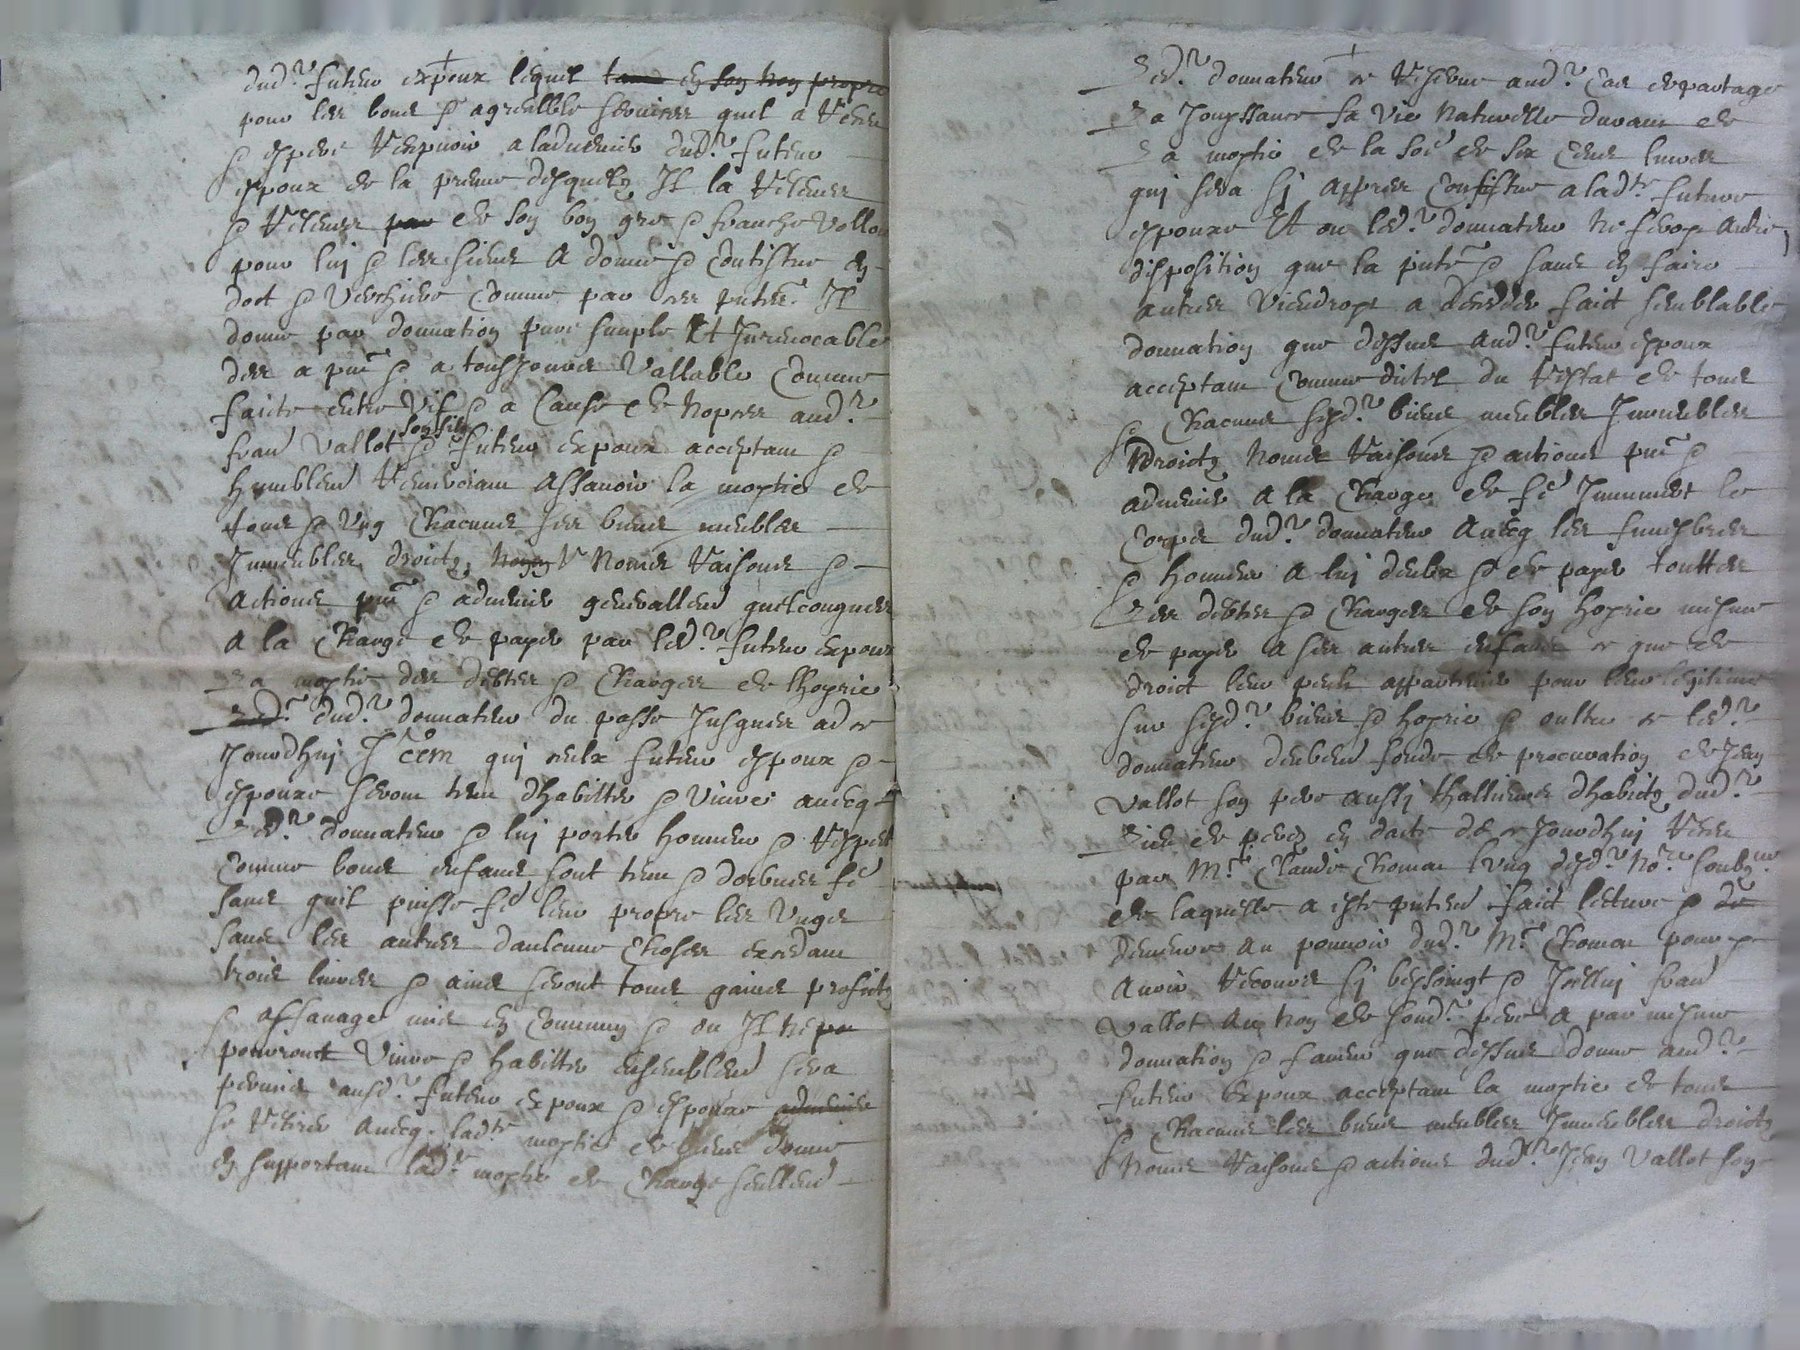 dud.r futeur expoux lequel tant en son nom propre
pour les bons et agreables services quil a receu
et espere recepuoir aladuenir dud.r futeur
espoux de la preuve desquelz Il la releuer
et releuer par de son bon gre et franche vollon
pour luj et les siens a donné et Constitue en
dot et verchiere comme par ces putes Il
donne par donnation pure simple Et Inreuocable
des a put et a tousjours vallable comme
faicte entre vifz et a Cause de nopces aud.r
fran vallot son filz et futeur expoux acceptant et
humblemt remerciant assauoir la moytie de
tous et Ung chacuns ses biens meubles
Immeubles droictz noms Raisons et
actions put et aduenir generallemt quelconques
A la charge de payer par led.r futeur expoux
La moytie des debtes et charges de lhoyrie
dud.r donnateur du passe Jusques a ce
Jourdhuj Item qui ceulx futeur espoux et
espouze seront tenu dhabitter et viure auecq
Led.r donnateur et luj porter honneur et respect
comme bons enfans sont tenu et doibuent fe
sans quil puisse fe leur propre les Ungs
sans les autres daulcune choses exedant
trois liures et ains seront tous gains profictz
et assauage mis en commung et ou Il ne
pourront viure et habitter ensemblemt sera
permis ausd.r futeur expoux et espouze
se retirer auecq lad.te moytie de biens donne
en supportant lad.te moytie de charge seullemt
Led.r donnateur se reserue aud.r cas de partage
La Jouyssance sa vie naturelle durant de
La moytie de la soe de six cens liures
qui sera sj appres constitue a lad.te future
espouze Et ou led.r donnateur ne feroyt autre
disposition que la pute et sans en faire
autres viendroyt a deceder faict semblable
donnation que dessus aud.r futeur espoux
acceptant comme dictes du restat de tous
et chacuns sesd.r biens meubles Immeubles
droictz noms Raisons et actions put et
aduenir a la charge de fe Inhumer le
corps dud.r donnateur auecq les funesbres
et honneur a luj deubz et de payer touttes
Les debtes et charges de son hoyrie mesme
de payer a ses autres enfans ce que de
droict leur peult appartenir pour leur legitime
sur sesd.r biens et hoyrie et oultre ce led.r
donnateur deubemt fonde de procuration de Jean
vallot son pere aussi thallieur dhabitz dud.r
Lieu de percy en datte de ce Jourdhuj receu
par M.e Claude Chomar lung desd.r no.re soubz.ne
de laquelle a este putemt faict lecture et
demeure au pouuoir dud.r M.e Chomar pour y
auoir recours sj bessoingt et Icelluj fran
vallot au nom de sond.r pere a par mesme
donnation et faueur que dessus donne aud.r
futeur expoux acceptant la moytie de tous
et chacuns les biens meubles Immeubles droictz
noms Raisons et actions dud.r Jean vallot son